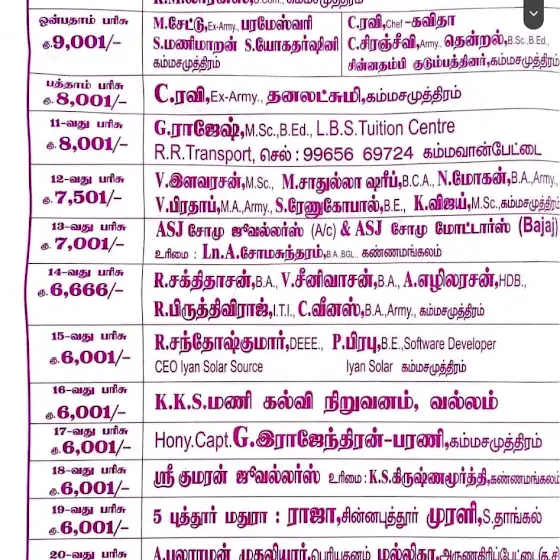 ஒன்பதாம் பரிசு
ரூ.9,001/-
M.சேட்டு,Ex-Army., பரமேஸ்வரி
S.மணிமாறன் S.யோகதர்ஷினி
கம்மசமுத்திரம்
C.ரவி,Chef -கவிதா
C.சிரஞ்சீவி,Army., தென்றல்,B.Sc.,B.Ed.,
சின்னதம்பி குடும்பத்தினர்,கம்மசமுத்திரம்
பத்தாம் பரிசு
ரூ.8,001/-
C.ரவி,Ex-Army., தனலட்சுமி,கம்மசமுத்திரம்
11-வது பரிசு
ரூ.8,001/-
G.ராஜேஷ்,M.Sc.,B.Ed., L.B.S.Tuition Centre
R.R.Transport, செல் : 99656 69724 கம்மவான்பேட்டை
12-வது பரிசு
ரூ.7,501/-
V.இளவரசன்,M.Sc., M.சாதுல்லா ஷரீப்,B.C.A., N.மோகன்,B.A.,Army.,
V.பிரதாப்,M.A.,Army., S.ரேணுகோபால்,B.E., K.விஜய்,M.Sc.,கம்மசமுத்திரம்
13-வது பரிசு
ரூ.7,001/-
ASJ சோமு ஜுவல்லர்ஸ் (A/c) & ASJ சோமு மோட்டார்ஸ் (Bajaj)
உரிமை : Ln.A.சோமசுந்தரம்,B.A.BGL., கண்ணமங்கலம்
14-வது பரிசு
ரூ.6,666/-
R.சக்திதாசன்,B.A., V.சீனிவாசன்,B.A., A.எழிலரசன்,HDB.,
R.பிருத்திவிராஜ்,I.T.I., C.வீனஸ்,B.A.,Army., கம்மசமுத்திரம்
15-வது பரிசு
ரூ.6,001/-
R.சந்தோஷ்குமார்,DEEE., P.பிரபு,B.E.,Software Developer
CEO Iyan Solar Source Iyan Solar கம்மசமுத்திரம்
16-வது பரிசு
ரூ.6,001/-
K.K.S.மணி கல்வி நிறுவனம், வல்லம்
17-வது பரிசு
ரூ.6,001/-
Hony.Capt.G.இராஜேந்திரன்-பரணி,கம்மசமுத்திரம்
18-வது பரிசு
ரூ.6,001/-
ஸ்ரீ குமரன் ஜுவல்லர்ஸ் உரிமை : K.S.கிருஷ்ணமூர்த்தி,கண்ணமங்கலம்
19-வது பரிசு
ரூ.6,001/-
5 புத்தூர் மதுரா : ராஜா,சின்னபுத்தூர் முரளி,S.தாங்கல்
20-வது பரிசு
A.பலராமன் முதலியார்,பெரியதனம் மல்லிகா,